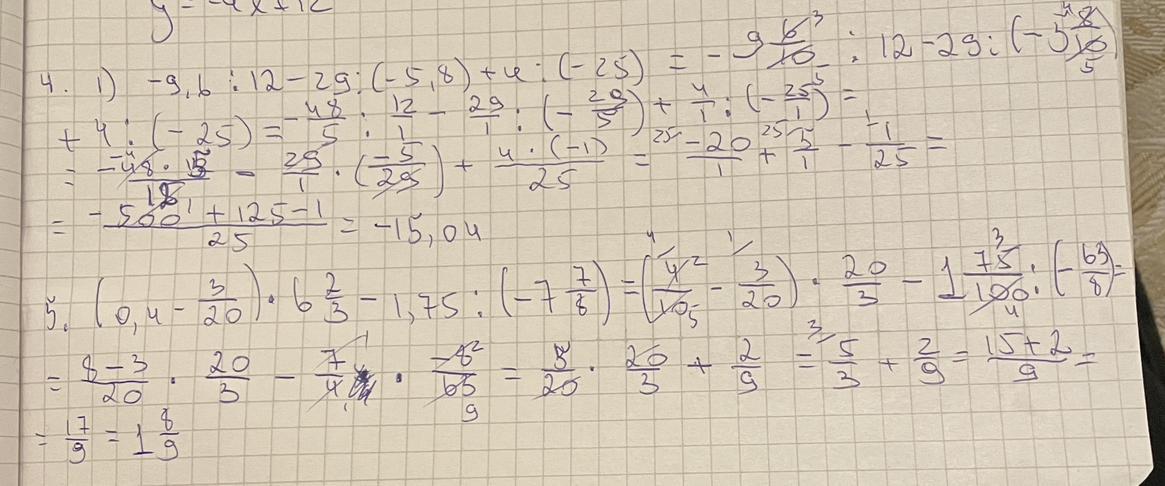 y = -4x+12
4. 1) -9,6 : 12 - 29 : (-5,8) + 4 : (-25) = -9 6/10 3 : 12 - 29 : (-5 8/10 4 5)
+ 4 : (-25) = -48/5 : 12/1 - 29/1 : (-29/5) + 4/1 : (-25/1) =
= -48 · 5/12 - 29/1 · (-5/29) + 4 · (-1)/25 = -20/1 + 5/1 - 1/25 =
= -500 + 125 - 1/25 = -15,04
5. (0,4 - 3/20) · 6 2/3 - 1,75 : (-7 7/8) = (4/10 2 5 - 3/20) · 20/3 - 1 75/100 3 4 : (-63/8) =
= 8-3/20 · 20/3 - 7/4 · -8/63 2 9 = 5/20 · 20/3 + 2/9 = 5/3 + 2/9 = 15+2/9 =
= 17/9 = 1 8/9